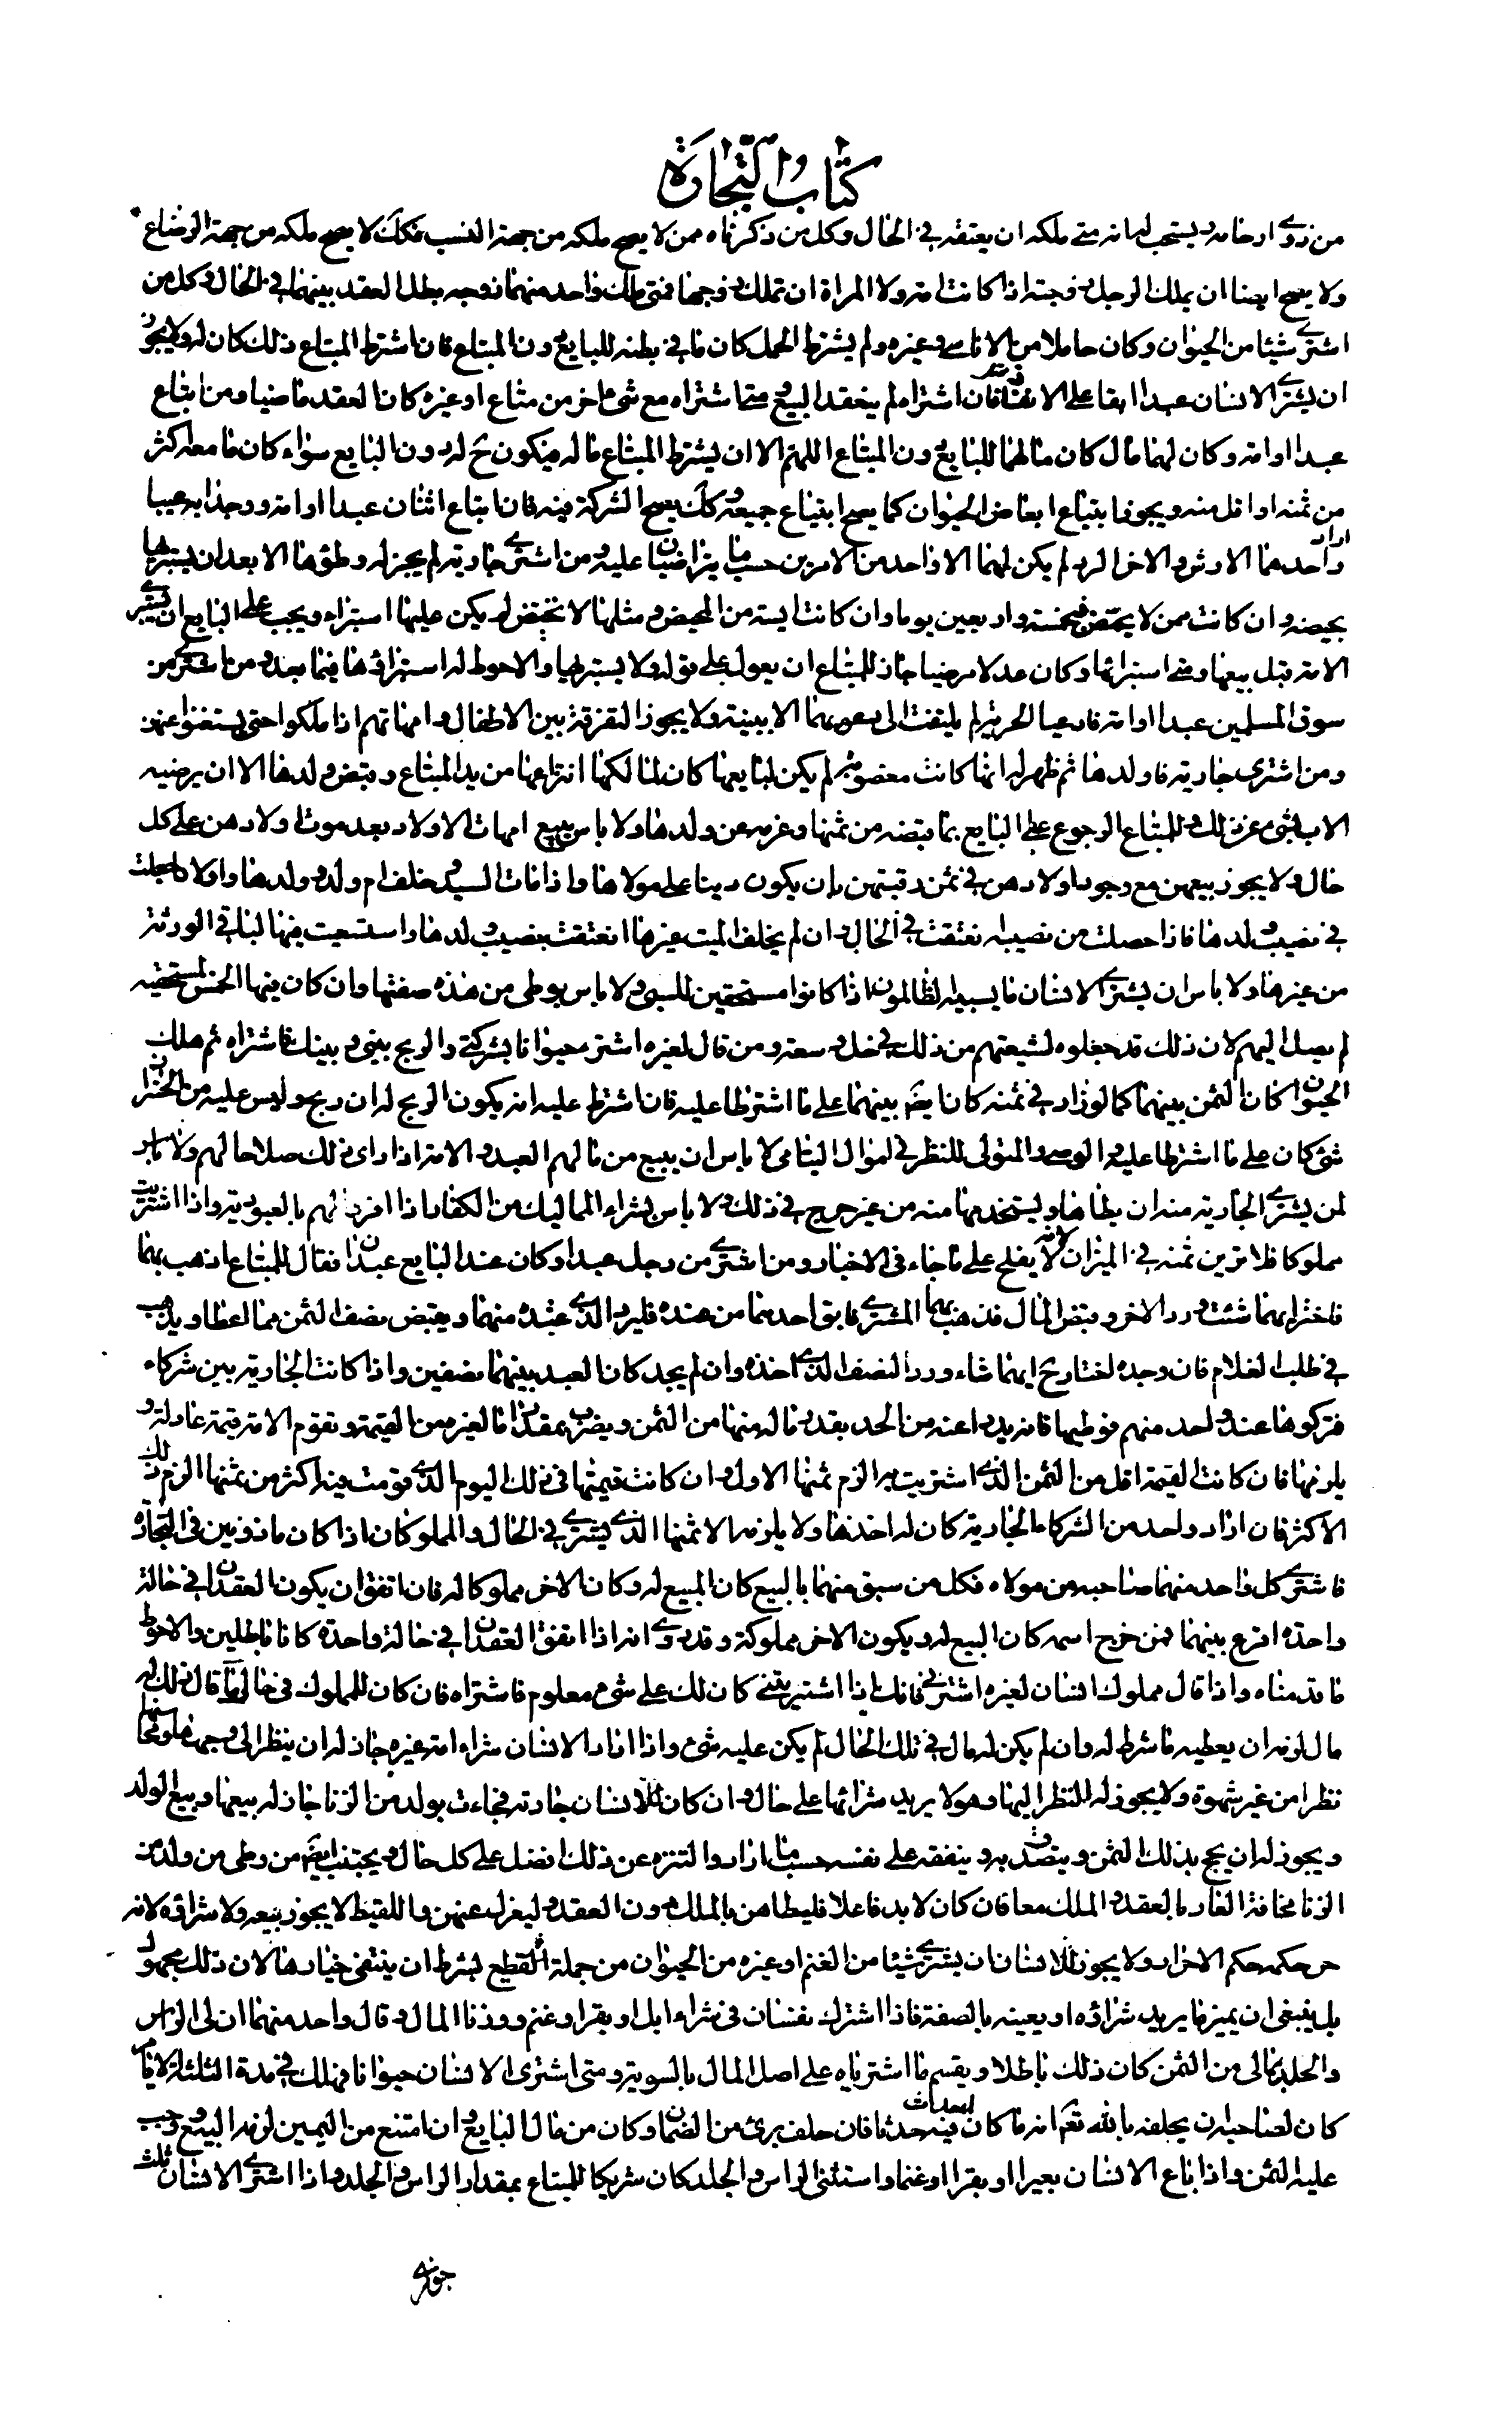 كتاب التجارة
من ذوي ارحامه ويستحب له انه متى ملكه ان يعتقه في الحال وكل من ذكرناه ممن لا يصح ملكه من جهة النسب فكك لا يصح ملكه من جهة الرضاع
ولا يصح ايضا ان يملك الرجل زوجته اذا كانت امة ولا المراة ان تملك زوجها فمتى ملك واحد منهما زوجه بطل العقد بينهما في الحال وكل من
اشترى شيئا من الحيوان وكان حاملا من الاناسي وغيره ولم يشترط الحمل كان ما في بطنه للبايع دون المبتاع فان اشترط المبتاع ذلك كان له ولا يجوز
ان يشترى الانسان عبدا ابقا على الانفراد فان اشتراه لم ينعقد البيع ومتى اشتراه مع شئ اخر من متاع او غيره كان العقد ماضيا ومن ابتاع
عبدا او امة وكان لهما مال كان مالهما للبايع دون المبتاع اللهم الا ان يشترط المبتاع ماله فيكون ح له دون البايع سواء كان ما معه اكثر
من ثمنه او اقل منه ويجوز ابتياع ابعاض الحيوان كما يصح ابتياع جميعه وكك يصح الشركة فيه فان ابتاع اثنان عبدا او امة ووجدا به عيبا
واراد احدهما الارش والاخر الرد لم يكن لهما الا واحد من الامرين حسب ما يتراضيان عليه ومن اشترى جارية لم يجز له وطؤها الا بعد ان يستبرئها
بحيضة وان كانت ممن لا يحيض فخمسة واربعين يوما وان كانت ايسة من المحيض ومثلها لا تحيض لم يكن عليها استبراء ويجب على البايع ان يستبرئ
الامة قبل بيعها ومتى استبرائها وكان عدلا مرضيا جاز للمبتاع ان يعول على قوله ولا يستبرئها والاحوط له استبراؤها فيما بعد ومن اشترى من
سوق المسلمين عبدا او امة فادعيا الحرية لم يلتفت الى دعويهما الا ببينة ولا يجوز التفرقة بين الاطفال وامهاتهم اذا ملكوا حتى يستغنوا عنهن
ومن اشترى جارية فاولدها ثم ظهر له انها كانت مغصوبة لم يكن لبايعها كان لمالكها انتزاعها من يد المبتاع وقبض ولدها الا ان يرضيه
الاب بشئ عن ذلك وللمبتاع الرجوع على البايع بما قبضه من ثمنها وغرمه عن ولدها ولا باس ببيع امهات الاولاد بعد موت اولادهن على كل
حال ولا يجوز بيعهن مع وجود اولادهن الا في ثمن رقبتهن بان يكون دينا على مولاها واذا مات السيد وخلف ام ولد وولدها واولادا جعلت
في نصيب ولدها فاذا حصلت من نصيبه انعتقت في الحال وان لم يخلف الميت غيرها انعتقت بنصيب ولدها واستسعيت فيما لباقي الورثة
من غيرها ولا باس ان يشترى الانسان ما يسبيه الظالمون اذا كانوا مستحقين للسبي ولا باس بوطى من هذه صفتها وان كان فيها الخمس لمستحقيه
لم يصل اليهم لان ذلك قد جعلوه لشيعتهم من ذلك في حل وسعة ومن قال لغيره اشتر حيوانا بشركتي والربح بيني وبينك فاشتراه ثم هلك
الحيوان كان الثمن بينهما كما لو زاد في ثمنه كان ايضا بينهما على ما اشترطا عليه فان اشترط عليه انه يكون الربح له ان ربح وليس عليه من الخسران
شئ كان على ما اشترطا عليه والوصي والمتولى للنظر في اموال اليتامى لا باس ان يبيع من مالهم العبد والامة اذا راى ذلك صلاحا لهم ولا باس
لمن يشترى الجارية منه ان يطاها ويستخدمها منه من غير حرج في ذلك ولا باس بشراء المماليك من الكفار اذا اقروا لهم بالعبودية واذا اشتريت
مملوكا فلا ترين ثمنه في الميزان لانه لا يفلح على ما جاء في الاخبار ومن اشترى من رجل عبدا وكان عند البايع عبدان فقال للمبتاع اذهب بهما
فاختر ايهما شئت ورد الاخر وقبض المال فذهب بهما المشترى فابق احدهما من عنده فليرد الذي عنده منهما ويقبض نصف الثمن مما اعطا ويذهب
في طلب الغلام فان وجده اختار ح ايهما شاء ورد النصف الذي اخذه وان لم يجد كان العبد بينهما نصفين واذا كانت الجارية بين شركاء
فتركوها عند واحد منهم فوطيها فانه يدرا عنه من الحد بقدر ماله منها من الثمن ويضرب بمقدار ما لغيره من القيمة وتقوم الامة قيمة عادلة و
يلزمها فان كانت القيمة اقل من الثمن الذي اشتريت به الزم ثمنها الاول وان كانت قيمتها في ذلك اليوم الذي قومت فيه اكثر من ثمنها الزم ذلك
الاكثر فان اراد واحد من الشركاء الجارية كان له اخذها ولا يلزمه الا ثمنها الذي يشترى في الحال والمملوكان اذا كان ماذونين في التجارة
فاشترى كل واحد منهما صاحبه من مولاه فكل من سبق منهما بالبيع كان المبيع له وكان الاخر مملوكا له فان اتفق ان يكون العقدان في حالة
واحدة اقرع بينهما فمن خرج اسمه كان البيع له ويكون الاخر مملوكه وقد روى انه اذا اتفق العقدان في حالة واحدة كانا باطلين والاحوط
ما قدمناه واذا قال مملوك انسان لغيره اشترني فانك اذا اشتريتني كان لك على شئ معلوم فاشتراه فان كان للمملوك في حال ما قال ذلك له
مال لزمه ان يعطيه ما شرط له وان لم يكن له مال في تلك الحال لم يكن عليه شئ واذا اراد الانسان شراء امة غيره جاز له ان ينظر الى وجهها ومحاسنها
نظرا من غير شهوة ولا يجوز له النظر اليها وهو لا يريد شرائها على حال وان كان للانسان جارية فجاءت بولد من الزنا جاز له بيعها وبيع الولد
ويجوز له ان يحج بذلك الثمن ويتصدق به وينفقه على نفسه حسب ما اراد والتنزه عن ذلك افضل على كل حال ويجتنب ايضا من وطى من ولد من
الزنا مخافة العار بالعقد والملك معا فان كان لا بد فاعلا فليطاهن بالملك دون العقد وليعزل عنهن واللقيط لا يجوز بيعه ولا شراؤه لانه
حر حكمه حكم الاحرار ولا يجوز للانسان ان يشترى شيئا من الغنم او غيره من الحيوان من جملة القطيع بشرط ان ينتقى خيارها لان ذلك مجهول
بل ينبغى ان يميز ما يريد شراؤه او يعينه بالصفة فاذا اشترك نفسان في شراء ابل او بقر او غنم ووزنا المال وقال واحد منهما ان لى الراس
والجلد بمالى من الثمن كان ذلك باطلا ويقسم ما اشترياه على اصل المال بالسوية ومتى اشترى الانسان حيوانا فهلك في مدة الثلثة الايام
كان لصاحبه ان يحلفه بالله تعم انه ما كان احدث فيه حدثا فان حلف برئ من الضمان وكان من مال البايع وان امتنع من اليمين لزمه البيع ووجب
عليه الثمن واذا باع الانسان بعيرا او بقرا او غنما واستثنى الراس والجلد كان شريكا للمبتاع بمقدار الراس والجلد واذا اشترى الانسان ثلث
جواري